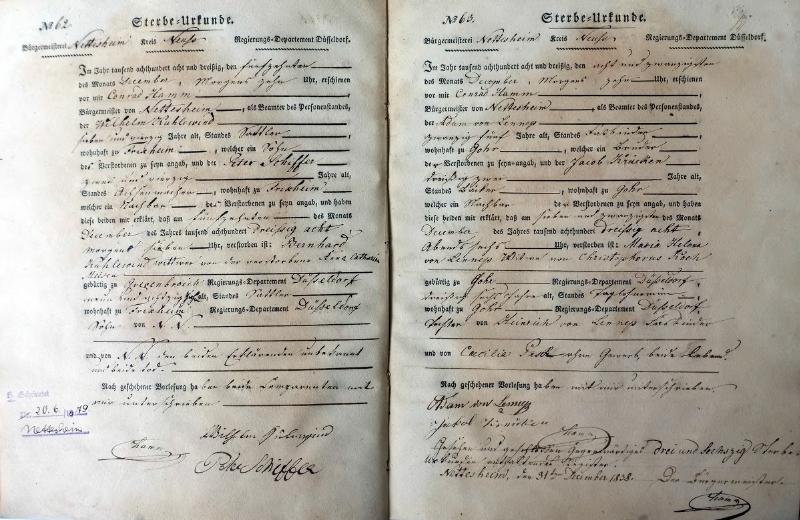 No 62.
Sterbe-Urkunde.
Bürgermeisterei Nettesheim Kreis Neuss Regierungs-Departement Düsseldorf.
Im Jahr tausend achthundert acht und dreißig, den fünfzehnten
des Monats December, Morgens zehn Uhr, erschienen
vor mir Conrad Hamm
Bürgermeister von Nettesheim, als Beamten des Personenstandes,
der Wilhelm Kühlewind
sieben und vierzig Jahre alt, Standes Sattler
wohnhaft zu Frixheim, welcher ein Sohn
des Verstorbenen zu seyn angab, und der Peter Schiffer
und vierzig Jahre alt,
Standes, wohnhaft zu Frixheim
welcher ein Nachbar des Verstorbenen zu seyn angab, und haben
diese beiden mir erklärt, daß am fünfzehnten des Monats
December des Jahres tausend achthundert dreissig acht,
morgens sieben Uhr, verstorben ist: Bernhard
Kühlewind wittwer von der verstorbene Anna Catharina
gebürtig zu Regierungs-Departement Düsseldorf
alt, Standes Sattler
wohnhaft zu Frixheim Regierungs-Departement Düsseldorf
Sohn von N.N.
und von N.N. den beiden Erklärenden unbekannt
und beide todt.
Nach geschehener Vorlesung haben beide Comparenten mit
mir unterschrieben
20.6.1979
Nettesheim
Hamm
Peter Schiffer
No 63.
Sterbe-Urkunde.
Bürgermeisterei Nettesheim Kreis Neuss Regierungs-Departement Düsseldorf.
Im Jahr tausend achthundert acht und dreißig, den acht und zwanzigsten
des Monats December, Morgens zehn Uhr, erschienen
vor mir Conrad Hamm
Bürgermeister von Nettesheim, als Beamten des Personenstandes,
der Adam von Lennep
zwanzig fünf Jahre alt, Standes Fassbinder
wohnhaft zu Gohr, welcher ein Bruder
der Verstorbenen zu seyn angab, und der Jacob Krücken
dreißig zwei Jahre alt,
Standes, wohnhaft zu Gohr
welcher ein Nachbar der Verstorbenen zu seyn angab, und haben
diese beiden mir erklärt, daß am sieben und zwanzigsten des Monats
December des Jahres tausend achthundert dreissig acht,
Abends sechs Uhr, verstorben ist: Maria Helena
von Lennep Witwe von Christophorus Röch
gebürtig zu Gohr Regierungs-Departement Düsseldorf
dreißig Jahre alt, Standes Taglöhnerin
wohnhaft zu Gohr Regierungs-Departement Düsseldorf
Tochter von Heinrich von Lennep Fassbinder
und von Caecilia ohne Gewerb, beide
Nach geschehener Vorlesung haben mit mir unterschrieben
Adam von Lennep
Hamm
Gesehen und geschlossen gegenwärtiges drei und sechszig Sterbe-
Urkunden enthaltendes Register.
Nettesheim, den 31ten December 1838. Der Bürgermeister
Hamm